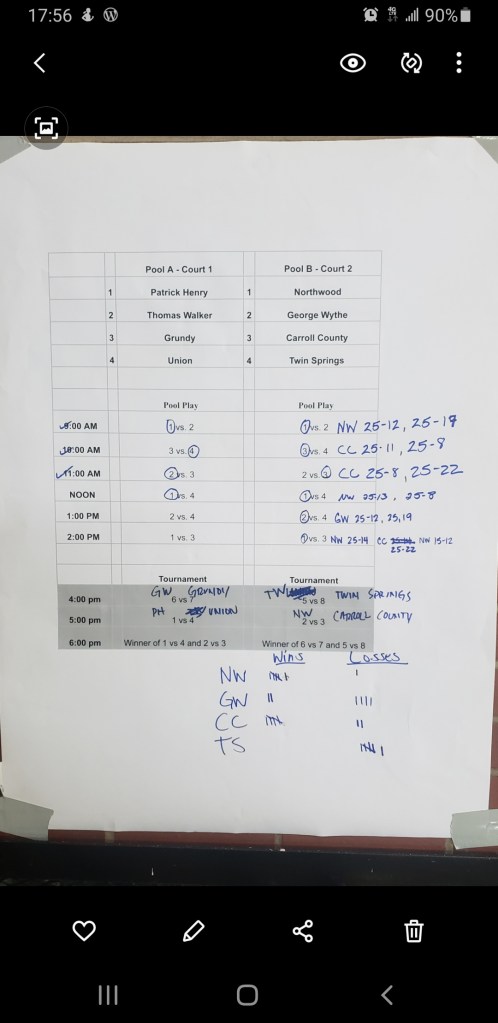 17:56 4G LTE 90%
Pool A - Court 1 Pool B - Court 2
1 Patrick Henry 1 Northwood
2 Thomas Walker 2 George Wythe
3 Grundy 3 Carroll County
4 Union 4 Twin Springs
Pool Play Pool Play
9:00 AM 1 vs. 2 1 vs. 2 NW 25-12, 25-19
10:00 AM 3 vs. 4 3 vs. 4 CC 25-11, 25-8
11:00 AM 2 vs. 3 2 vs. 3 CC 25-8, 25-22
NOON 1 vs. 4 1 vs 4 NW 25-13, 25-8
1:00 PM 2 vs. 4 2 vs. 4 GW 25-12, 25,19
2:00 PM 1 vs. 3 1 vs. 3 NW 25-14 CC NW 15-12
25-22
Tournament Tournament
GW GRUNDY TW TWIN SPRINGS
4:00 pm 6 vs 7 5 vs 8
PH UNION NW CARROLL COUNTY
5:00 pm 1 vs 4 2 vs 3
6:00 pm Winner of 1 vs 4 and 2 vs 3 Winner of 6 vs 7 and 5 vs 8
Wins Losses
NW
GW
CC
TS